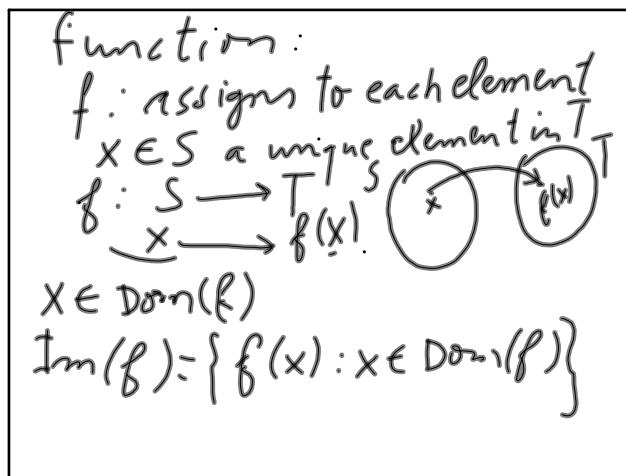 function:
f: assigns to each element
x ∈ S a unique element in T
f: S → T
x → f(x).
S
T
x
f(x)
x ∈ Dom(f)
Im(f) = {f(x) : x ∈ Dom(f)}